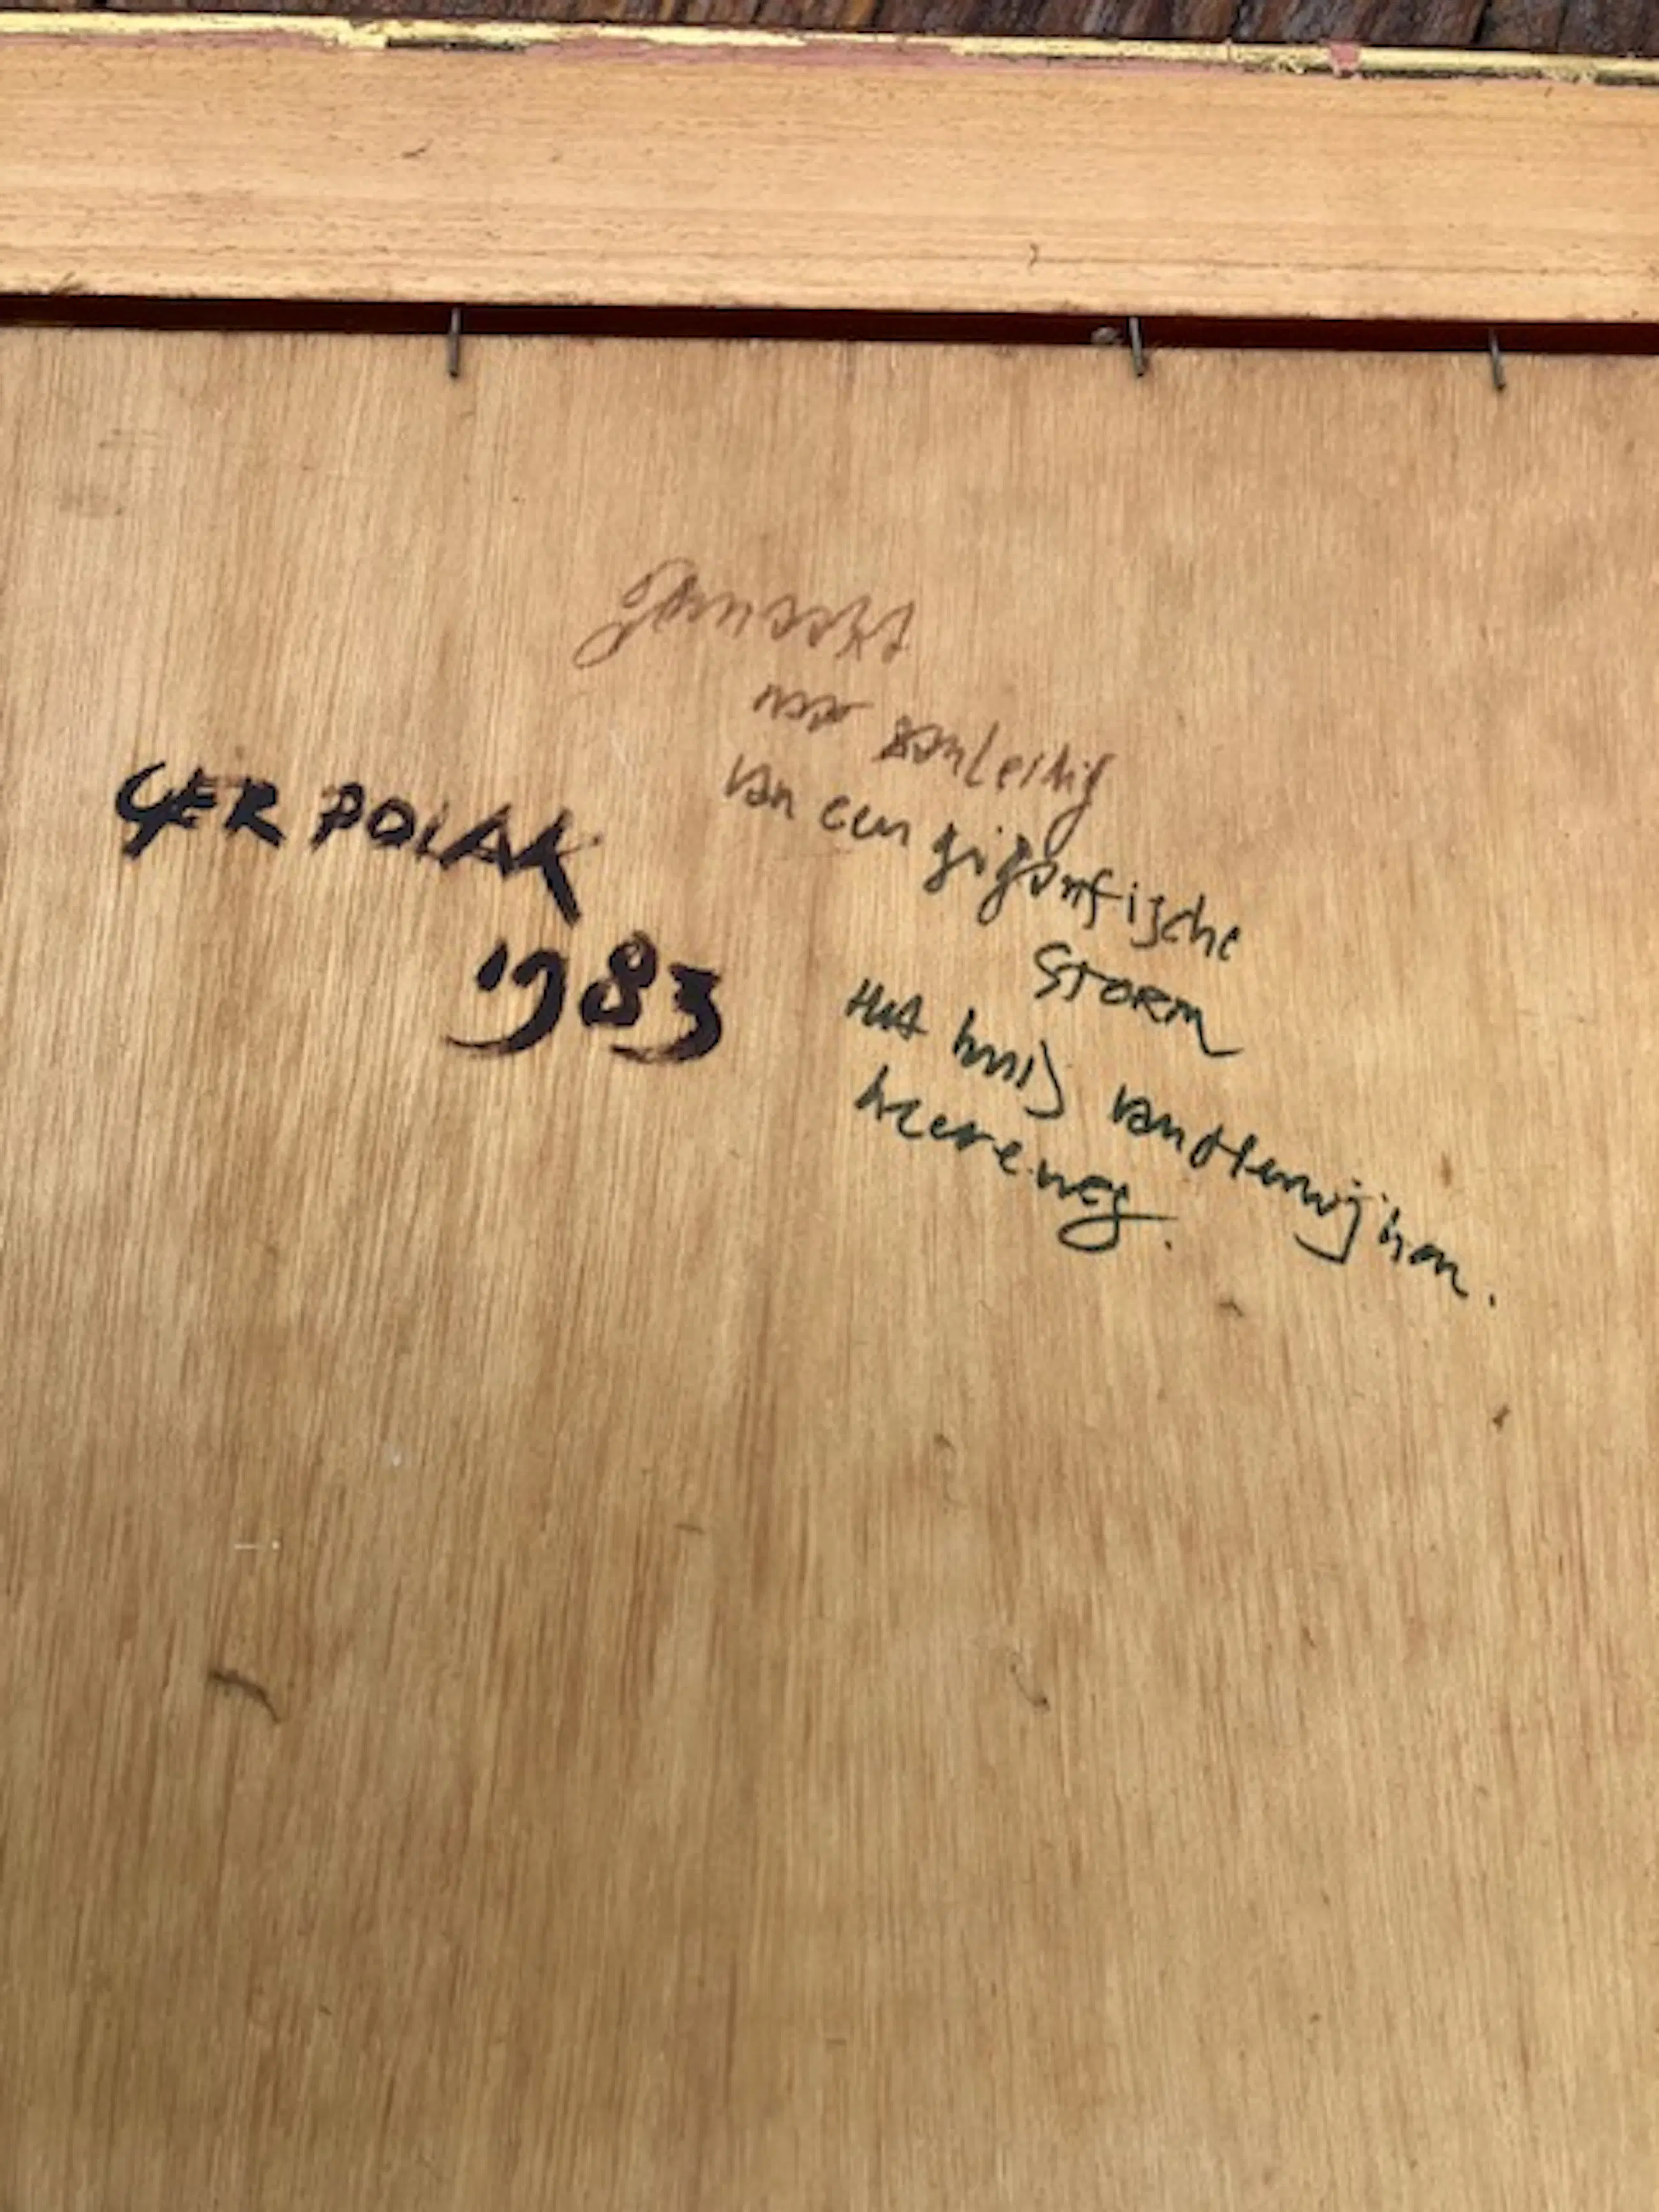 GER POLAK
1983
Gemaakt
naar aanleidig
van een gigantische
STORM
Het huis van
heereweg.